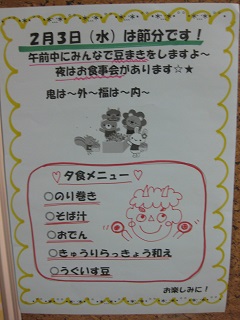 2月3日（水）は節分です！
午前中にみんなで豆まきをしますよ～
夜はお食事会があります☆★
鬼は～外～福は～内～
♡夕食メニュー♡
○のり巻き
○そば汁
○おでん
○きゅうりらっきょう和え
○うぐいす豆
お楽しみに！